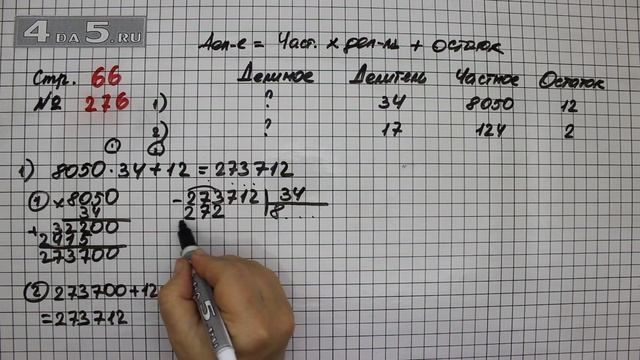 4DA5.RU
Дел-е = Част. × дел-ль + Остаток
Стр. 66
№ 276
Делимое Делитель Частное Остаток
1) ? 34 8050 12
2) ? 17 124 2
① ②
1) 8050 · 34 + 12 = 273712
① × 8050
34
+ 32200
2415
273700
- 273712 | 34
272 8 . . . .
② 273700 + 12
= 273712
5